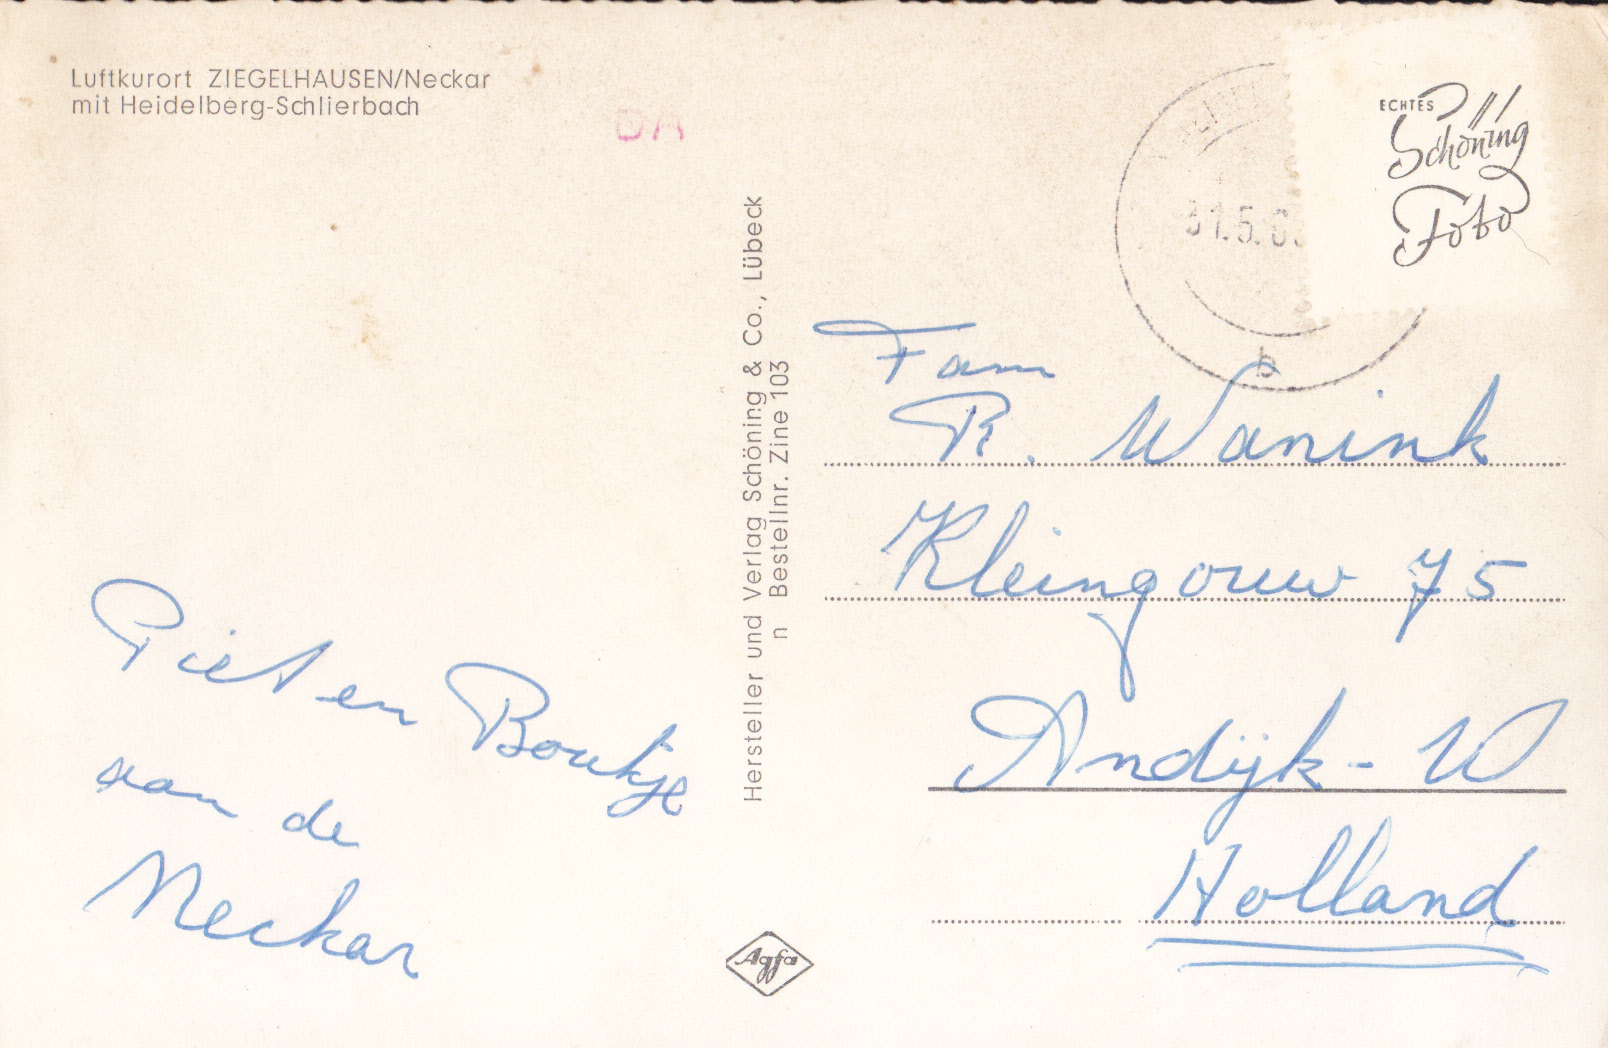 Luftkurort ZIEGELHAUSEN/Neckar
mit Heidelberg-Schlierbach
Piet en Boukje
van de
Neckar
Hersteller und Verlag Schöning & Co., Lübeck
n Bestellnr. Zine 103
Agfa
ECHTES
Schöning
Foto
31.5.6
b
Fam
R. Wanink
Kleingouw 75
Andijk - W
Holland